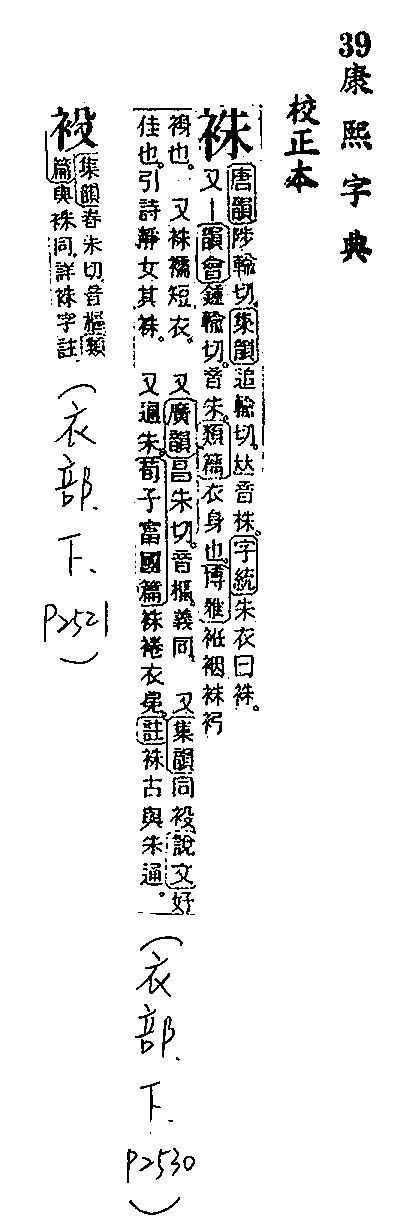 39康熙字典
校正本
袾
唐韻陟輸切。集韻追輸切。𠀤音株。字統朱衣曰袾。
又一韻會鍾輸切。音朱。類篇衣身也。博雅袛裀袜袑
裑也。又袾襦短衣。又廣韻昌朱切。音樞。義同。又集韻同祋說文好
佳也。引詩靜女其袾。又通朱。荀子富國篇袾裷衣冕。註袾古與朱通。
(衣部.下.P2530)
祋
集韻春朱切。音樞。類
篇與袾同。詳袾字註
(衣部.下.P2521)